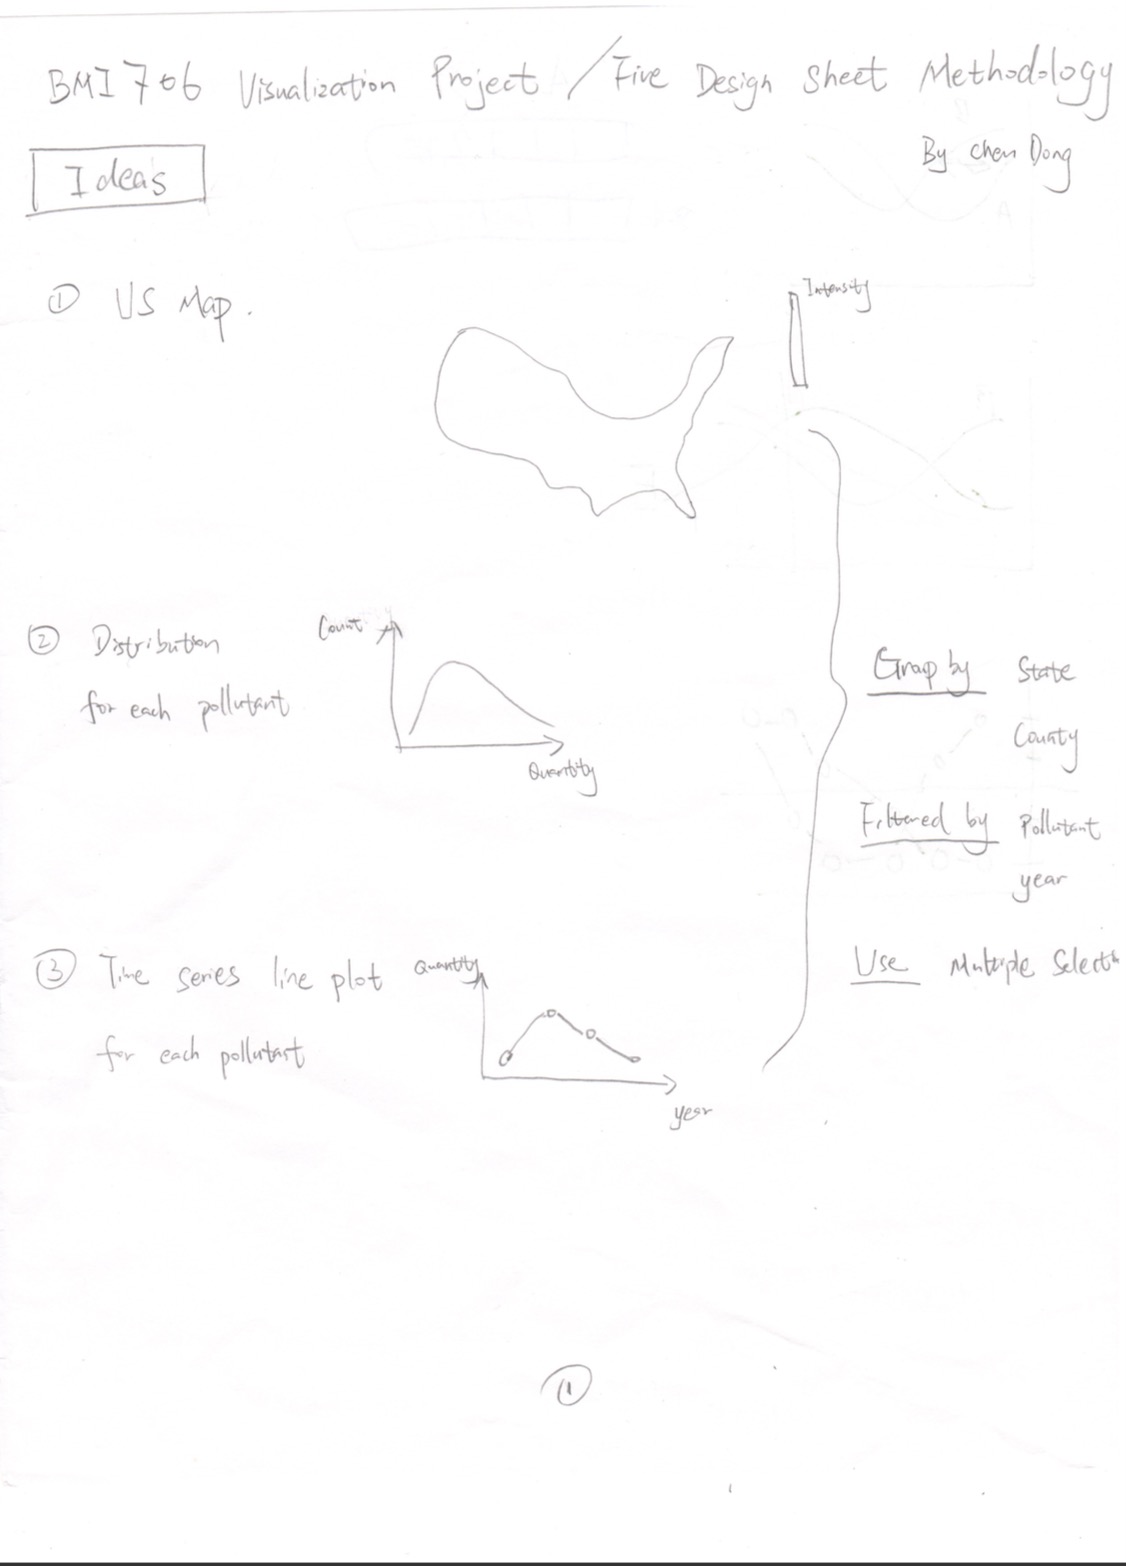 BMI 706 Visualization Project / Five Design Sheet Methodology
By Chen Dong
Ideas
① US Map.
Intensity
② Distribution
for each pollutant
Count
Quantity
③ Time series line plot
for each pollutant
Quantity
year
Group by State
County
Filtered by Pollutant
year
Use Multiple
①